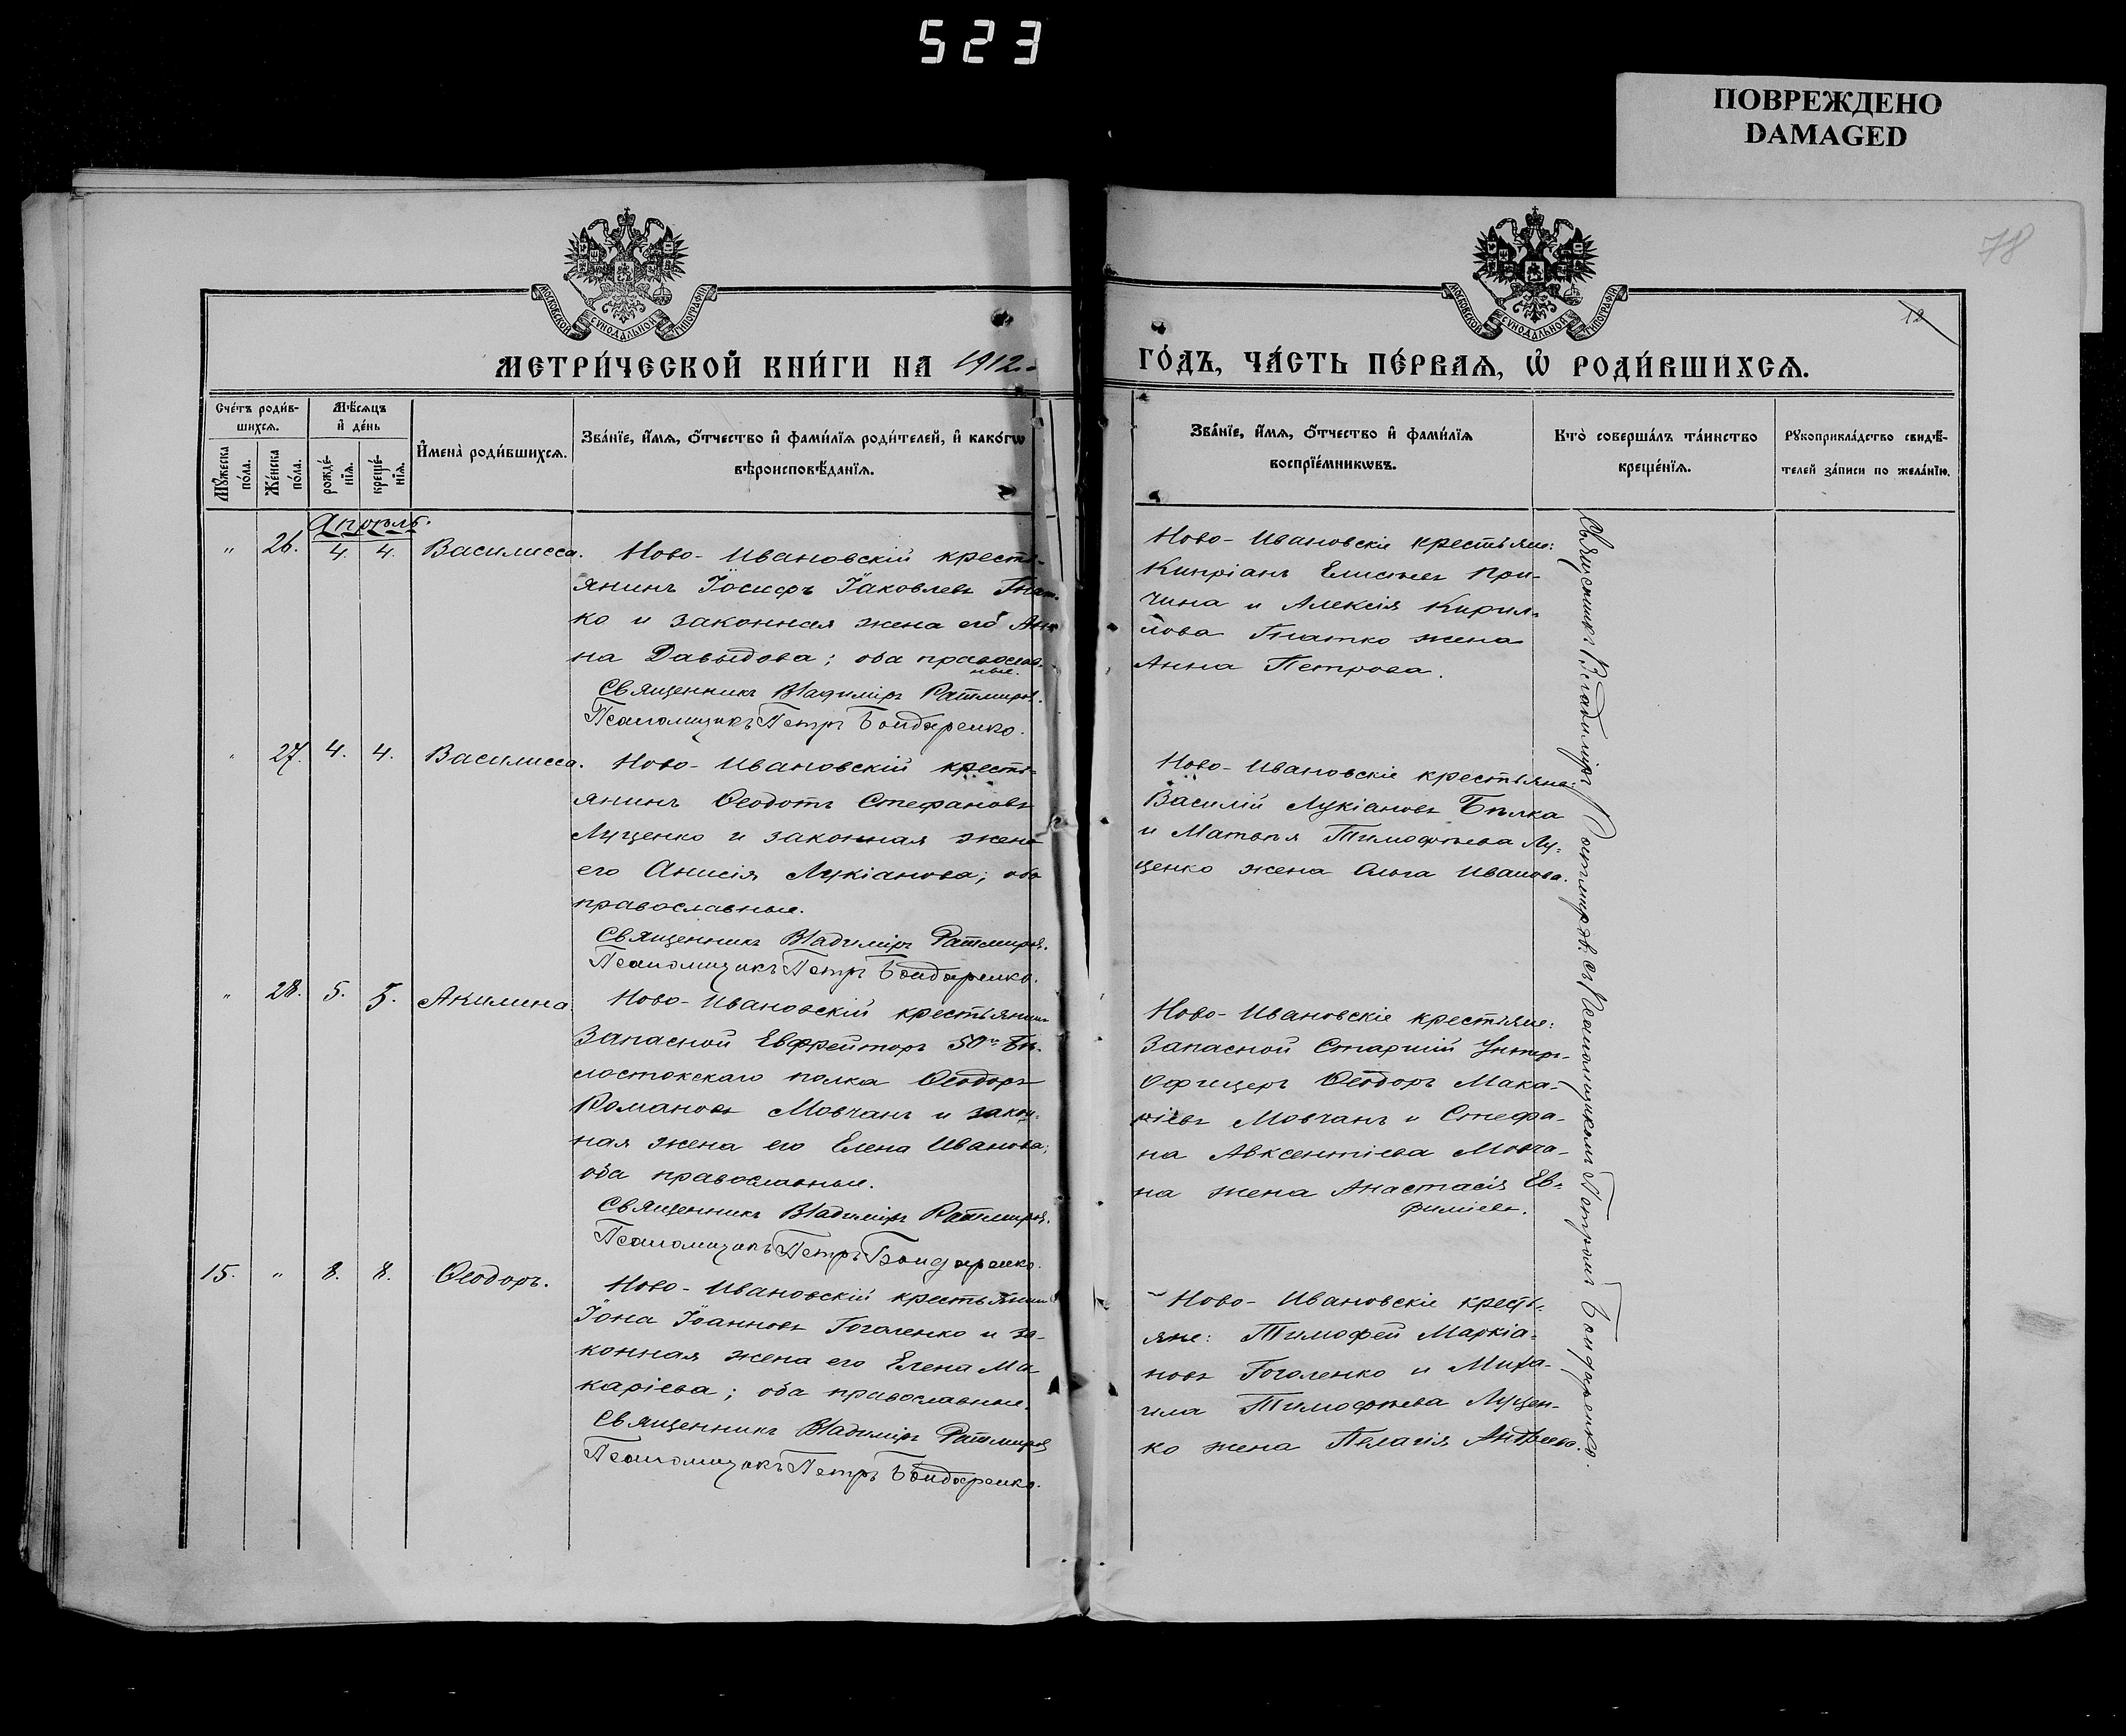 523
ПОВРЕЖДЕНО
DAMAGED
78
12
МОСКОВСКОЙ СѴНОДАЛЬНОЙ ТИПОГРАФІИ
МОСКОВСКОЙ СѴНОДАЛЬНОЙ ТИПОГРАФІИ
МЕТРИ́ЧЕСКОЙ КНИ́ГИ НА 1912
ГО́ДЪ, ЧА́СТЬ ПЕ́РВАѦ, Ѽ РОДИ́ВШИХСѦ.
Сче́тъ роди́в-
шихсѧ.
Мꙋ́жеска по́ла.
Же́нска по́ла.
Мѣ́сѧцъ
и҆ де́нь
рожде́-
нїѧ.
креще́-
нїѧ.
И҆мена̀ роди́вшихсѧ.
Зва́нїе, и҆́мѧ, ѻ҆́тчество и҆ фами́лїѧ роди́телей, и҆ како́гѡ
вѣроисповѣ́данїѧ.
Зва́нїе, и҆́мѧ, ѻ҆́тчество и҆ фами́лїѧ
воспрїе́мникѡвъ.
Кто̀ соверша́лъ та́инство
креще́нїѧ.
Рꙋкоприкла́дство свидѣ́-
телей за́писи по жела́нїю.
Апрѣль.
" 26. 4. 4. Василисса.
Ново-Ивановскій кресть-
янинъ Іосифъ Іаковлевъ Гнат-
ко и законная жена его Ан-
на Давыдова; оба православ-
ные.
Священникъ Владиміръ Ратмировъ.
Псаломщикъ Петръ Бондаренко.
Ново-Ивановскіе крестьяне:
Кипріанъ Елисѣевъ При-
чина и Алексія Кирил-
лова Гнатко жена
Анна Петрова.
" 27. 4. 4. Василисса.
Ново-Ивановскій кресть-
янинъ Ѳеодотъ Стефановъ
Луценко и законная жена
его Анисія Лукіанова; оба
православные.
Священникъ Владиміръ Ратмировъ.
Псаломщикъ Петръ Бондаренко.
Ново-Ивановскіе крестьяне:
Василій Лукіановъ Бѣлка
и Матвѣя Тимофѣева Лу-
ценко жена Ольга Иванова.
" 28. 5. 5. Акилина
Ново-Ивановскій крестьянинъ
Запасной Ефрейторъ 50го Бѣ-
лостокскаго полка Ѳеодоръ
Романовъ Мовчанъ и закон-
ная жена его Елена Иванова;
оба православные.
Священникъ Владиміръ Ратмировъ.
Псаломщикъ Петръ Бондаренко.
Ново-Ивановскіе крестьяне:
Запасной Старшій Унтеръ-
Офицеръ Ѳеодоръ Мака-
ріевъ Мовчанъ и Стефа-
на Авксентіева Мовча-
на жена Анастасія Ев-
фиміева.
15. " 8. 8. Ѳеодоръ.
Ново-Ивановскій крестьянинъ
Іона Іоанновъ Гогаленко и за-
конная жена его Елена Ма-
каріева; оба православные.
Священникъ Владиміръ Ратмировъ
Псаломщикъ Петръ Бондаренко.
Ново-Ивановскіе кресть-
яне: Тимофей Маркіа-
новъ Гогаленко и Миха-
ила Тимофѣева Луцен-
ко жена Пелагія Андреева.
Священникъ Владиміръ Ратмировъ съ Псаломщикомъ Петромъ Бондаренко.